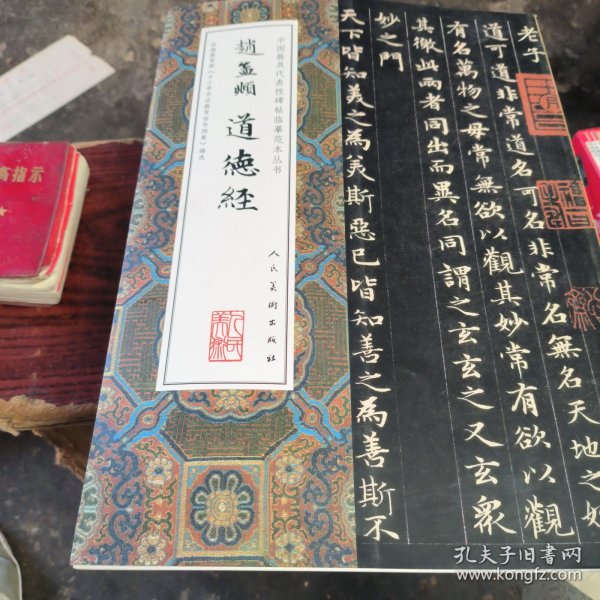 中国最具代表性碑帖临摹范本丛书
趙孟頫 道德經
人民美術出版社
老子
道可道非常道名可名非常名無名天地之始
有名萬物之母常無欲以觀其妙常有欲以觀
其徼此兩者同出而異名同謂之玄玄之又玄衆
妙之門
天下皆知美之為美斯惡已皆知善之為善斯不
高指示
孔夫子旧书网
www.kongfz.com